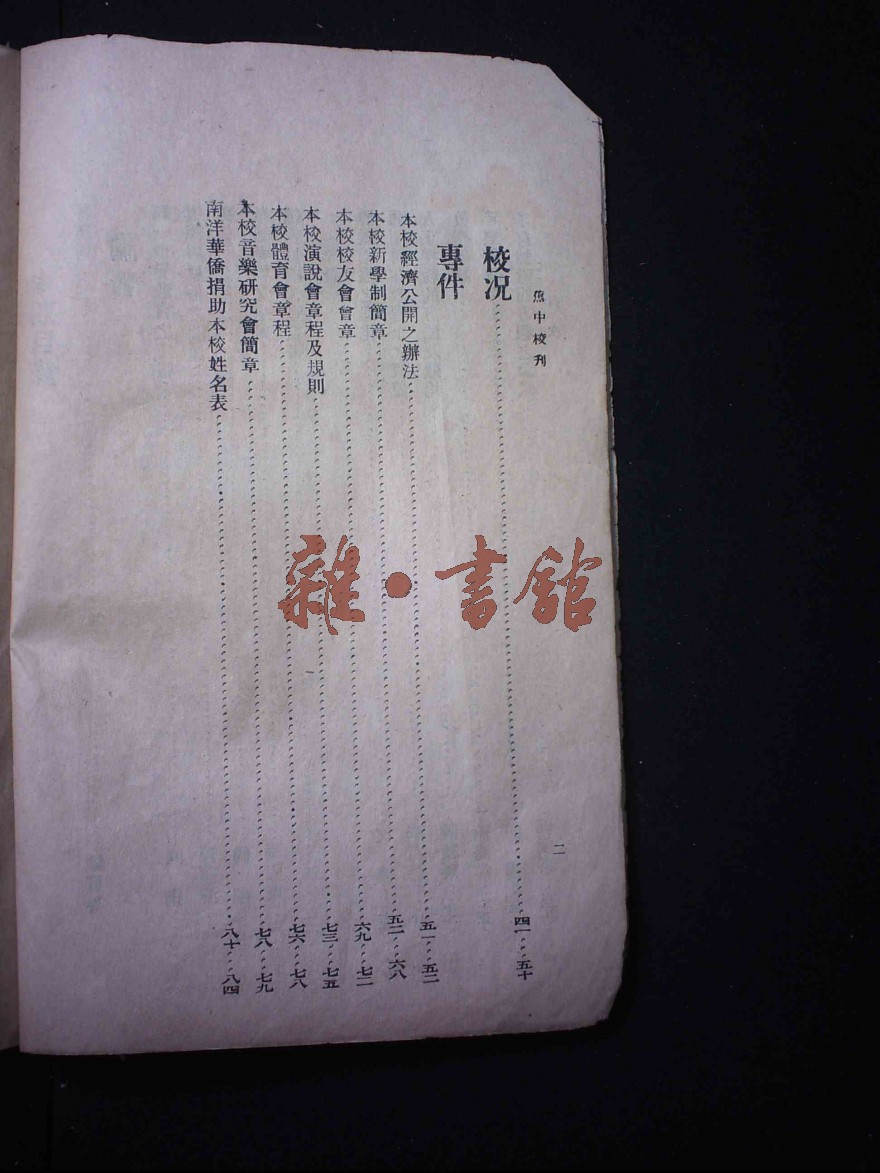 焦中校刊
二
校况……四一……五十
專件
本校經濟公開之辦法……五一……五二
本校新學制簡章……五二……六八
本校校友會會章……六九……七二
本校演說會章程及規則……七三……七五
本校體育會章程……七六……七八
本校音樂研究會簡章……七八……七九
南洋華僑捐助本校姓名表……八十……八四
雜·書館